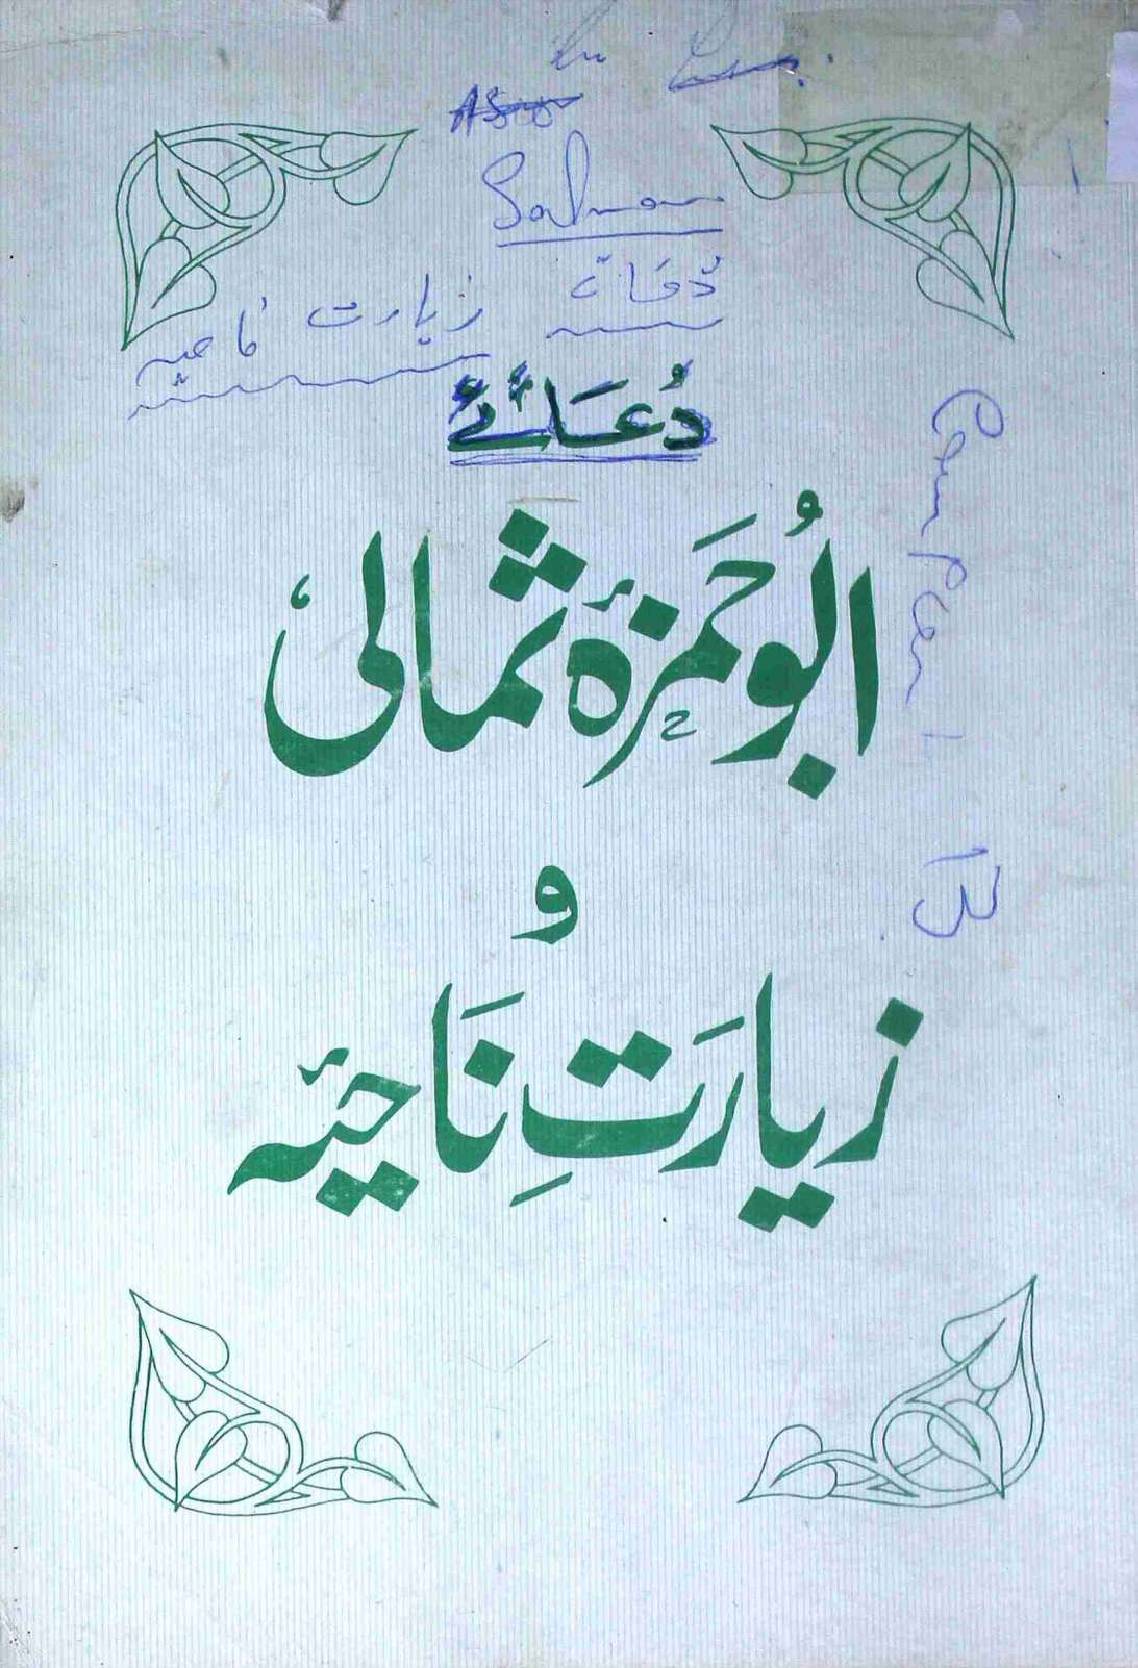 Salman
دعائے
زیارت ناحیہ
دُعَائے
ابُوحَمزۂ ثمالی
و
زیارَتِ نَاحیۂ